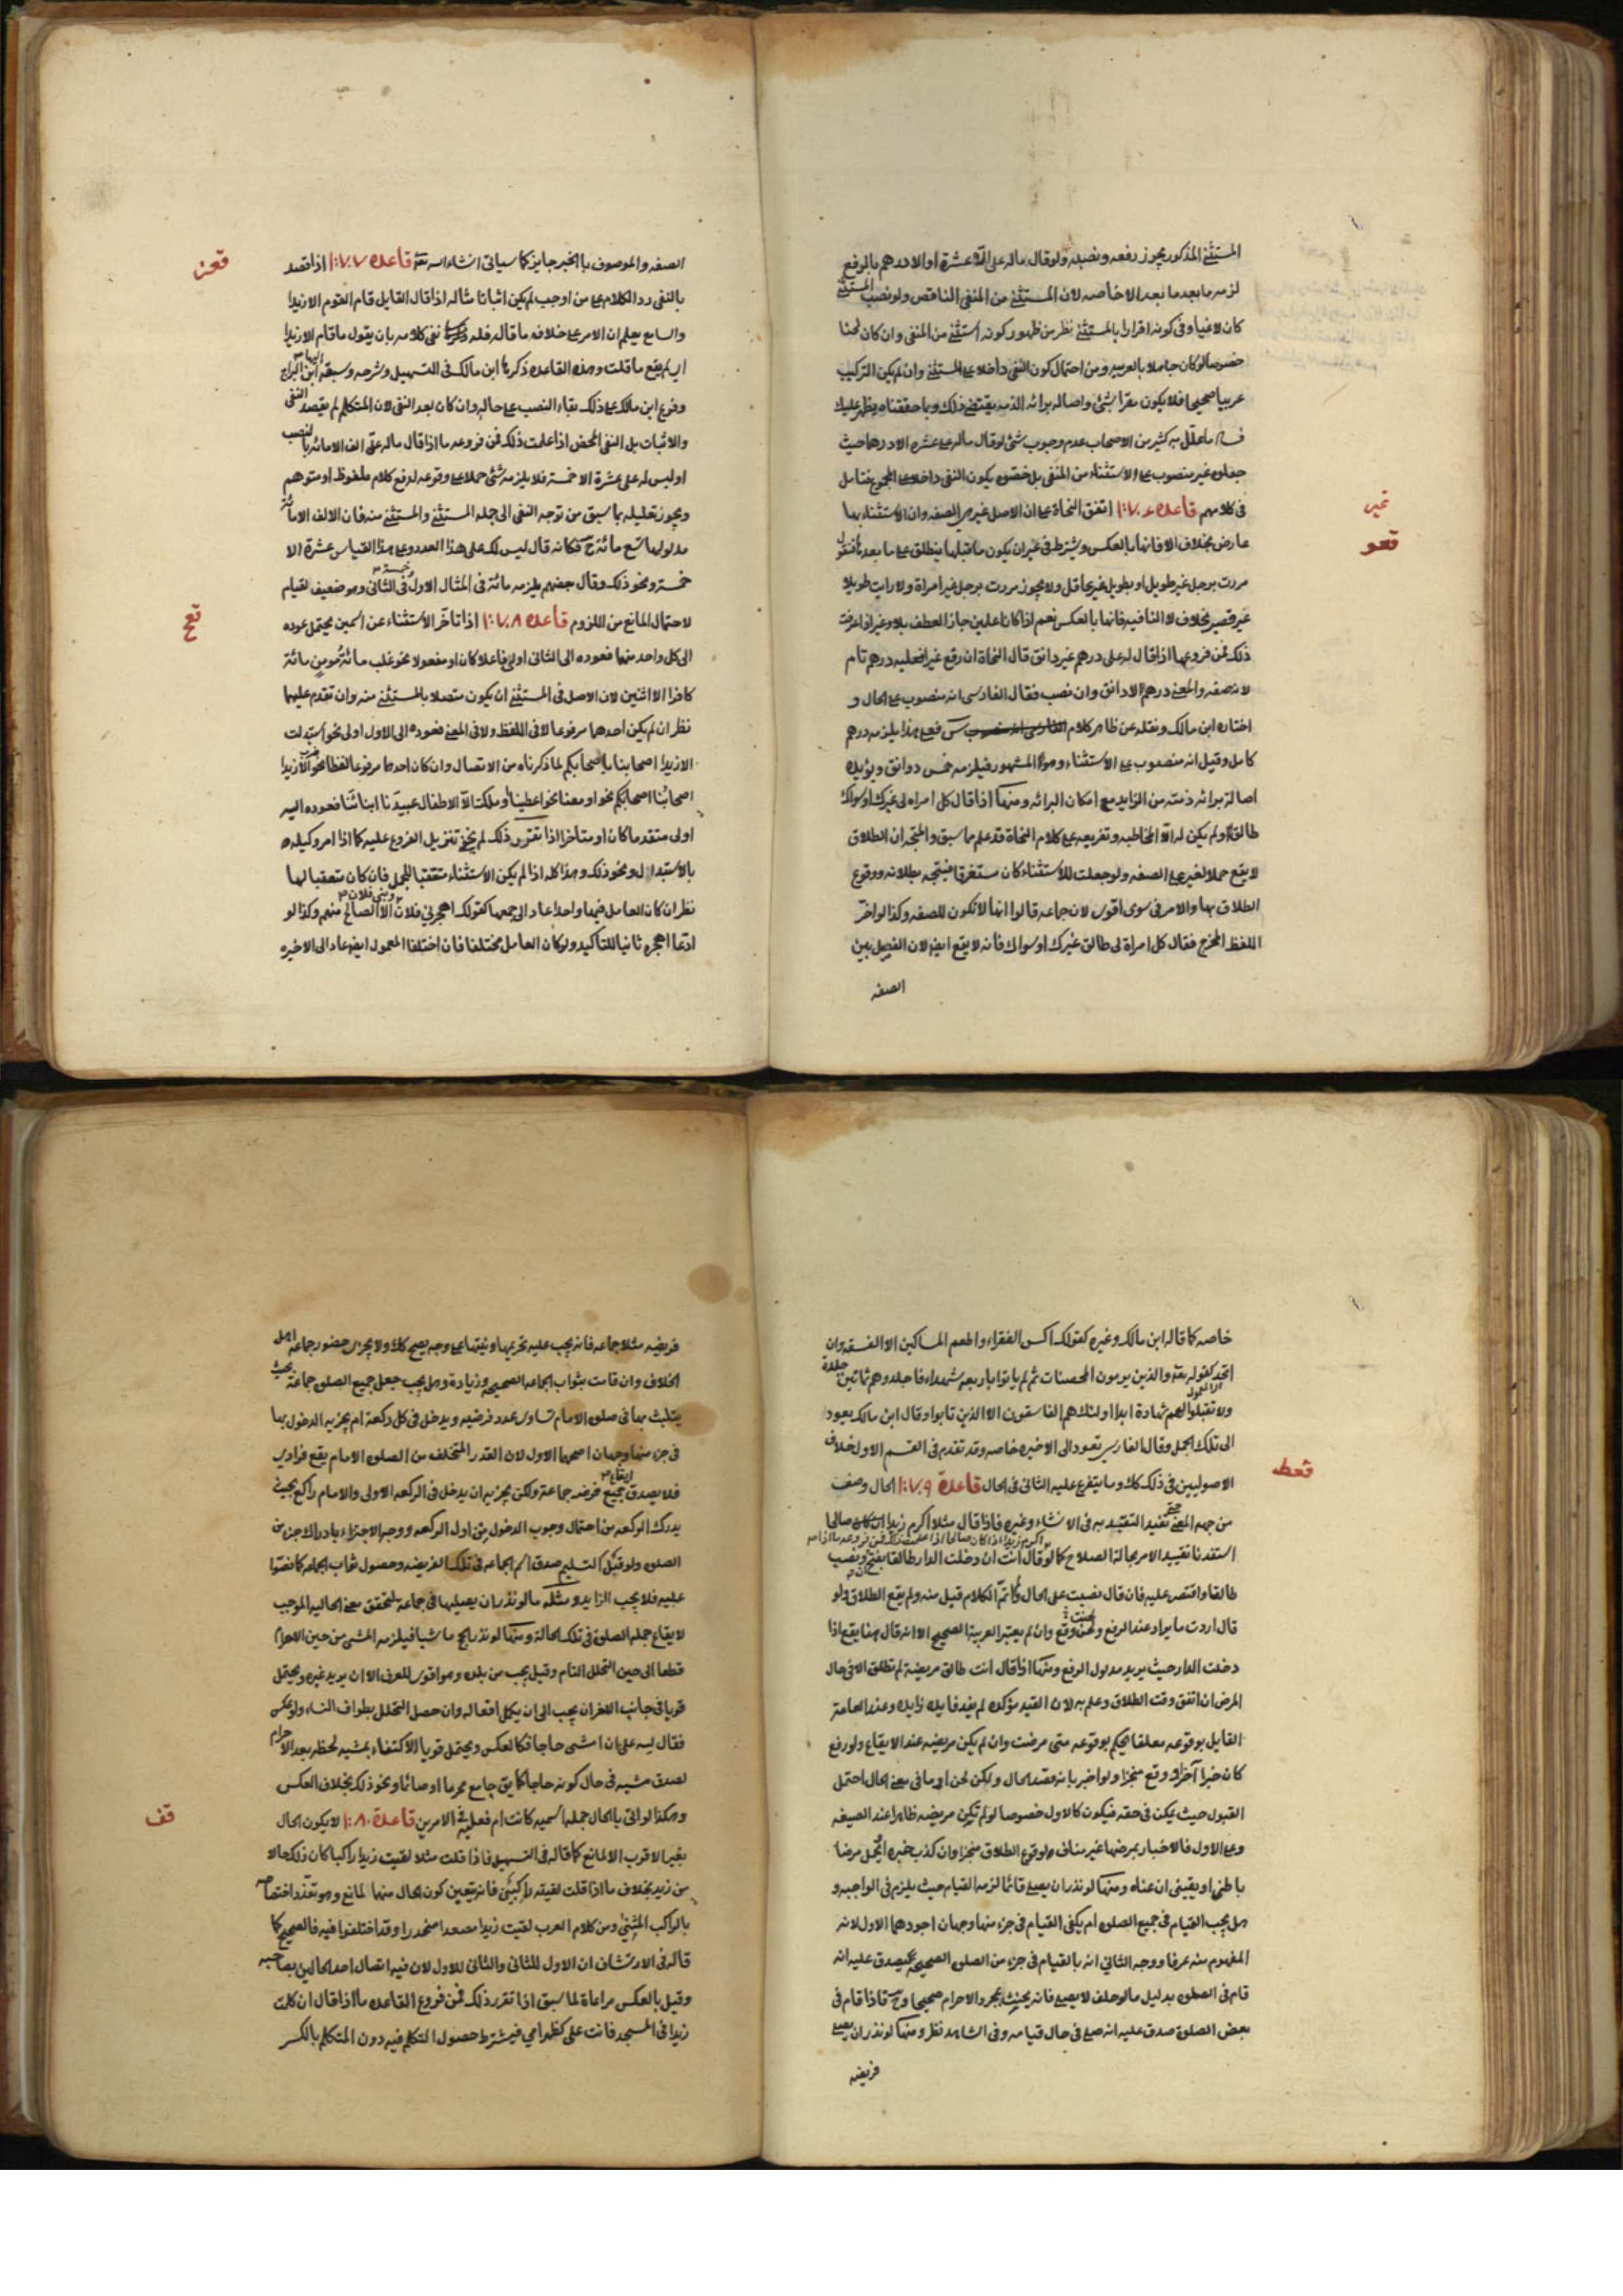 المستثنى المذكور يجوز رفعه ونصبه ولو قال ماله على الا عشرة او الا درهم بالرفع
لزمه ما بعد الا خاصه لان المستثنى من المنفى الناقص ولو نصب المستثنى
كان لاغيا وفى كونه اقرارا بالمستثنى نظر من ظهور كونه استثنى من المنفى وان كان لحنا
خصوصا لو كان جاهلا بالعربيه ومن احتمال كون النفى داخلا على المستثنى وان لم يكن التركيب
عربيا صحيحا فلا يكون مقرا بشئ واصاله براءه الذمه يقتضى ذلك وبما حققناه يظهر عليك
فساد ما علّل به كثير من الاصحاب عدم وجوب شئ لو قال ماله على عشره الا درهما حيث
جعلوه غير منصوب على الاستثناء من المنفى بل خصّوه بكون النفى داخلا على المجموع فتامل
فى كلامهم قاعده ١٧٦ اتفق النحاة على ان الاصل غير هى الصفه وان الاستثناء بها
غير
قعو
عارض بخلاف الا فانها بالعكس ويشترط فى غير ان يكون ما قبلها ينطلق على ما بعدها فتقول
مررت برجل غير طويل او بطويل غير عاقل ولا يجوز مررت برجل غير امراة ولا رايت طويلا
غير قصير بخلاف لا النافيه فانها بالعكس نعم اذا كانا علمين جاز العطف بلا وغير اذا عرفت
ذلك فمن فروعها اذا قال له على درهم غير دانق قال النحاة ان رفع غير فعليه درهم تام
لانه صفه والمعنى درهم لا دانق وان نصب فقال الفارسى انه منصوب على الحال و
اختاره ابن مالك ونقله عن ظاهر كلام س فعلى هذا يلزمه درهم
كامل وقيل انه منصوب على الاستثناء وهو المشهور فيلزمه خمس دوانق ويؤيده
اصالة براءه ذمته من الزايد مع امكان البراءه ومنها اذا قال كل امراه لى غيرك او سواك
طالق ولم يكن له الا المخاطبه وتفريعه على كلام النحاة قد علم ما سبق والمتجه ان الطلاق
لا يقع حملا لغير على الصفه ولو جعلت للاستثناء كان مستغرقا فيتجه بطلانه ووقوع
الطلاق بها والامر فى سوى اقوى لان جماعه قالوا انها لا تكون للصفه وكذا لو اخّر
اللفظ المخرج فقال كل امراة لى طالق غيرك او سواك فانه لا يقع ايضا لان الفصل بين
الصفه
الصفه والموصوف بالخبر جايز كما سياتى انشاء الله تعالى قاعده ١٧٧ اذا قصد
قعز
بالنفى رد الكلام على من اوجب لم يكن اثباتا مثاله اذا قال القايل قام القوم الا زيدا
والسامع يعلم ان الامر على خلاف ما قاله فله نفى كلامه بان يقول ما قام الا زيدا
اى لم يقع ما قلت وهذه القاعده ذكرها ابن مالك فى التسهيل وشرحه وسبقه اليها ابن السراج
وفرع ابن مالك على ذلك بقاء النصب على حاله وان كان بعد النفى لان المتكلم لم يقصد النفى
والاثبات بل النفى المحض اذا علمت ذلك فمن فروعه ما اذا قال ماله على الف الا مائه بالنصب
او ليس له على عشرة الا خمسة فلا يلزمه شئ حملا على وقوعه لدفع كلام ملفوظ او متوهم
ويجوز تعليله بما سبق من توجه النفى الى جمله المستثنى والمستثنى منه فان الالف الا مائة
مدلولها تسع مائة ح فكانه قال ليس لك على هذا العدد وعلى هذا القياس عشرة الا
خمسة ونحو ذلك وقال بعضهم يلزمه مائة فى المثال الاول وخمسة فى الثانى وهو ضعيف لقيام
لاحتمال المانع من اللزوم قاعده ١٧٨ اذا تاخّر الاستثناء عن اسمين يحتمل عوده
قعح
الى كل واحد منهما فعوده الى الثانى اولى فاعلا كان او مفعولا نحو غلب مائة مومن مائة
كافرا الا اثنين لان الاصل فى المستثنى ان يكون متصلا بالمستثنى منه وان تقدم عليهما
نظر ان لم يكن احدهما مرفوعا لا فى اللفظ ولا فى المعنى فعوده الى الاول اولى نحو استبدلت
الا زيدا اصحابنا باصحابكم لما ذكرناه من الاتصال وان كان احدهما مرفوعا لفظا نحو ضرب الا زيدا
اصحابنا اصحابكم نحو او معنا نحو اعطينا او ملكت الا الاطفال عبيدنا ابنائنا فعوده اليه
اولى متقدما كان او متاخرا اذا تقرر ذلك لم يخف تنزيل الفروع عليه كما اذا امر وكيله
بالاستبدال ونحو ذلك وهذا كله اذا لم يكن الاستثناء متعقبا للجمل فان كان متعقبا لها
نظر ان كان العامل فيها واحدا عاد الى جميعها كقولك اهجر بنى فلان وبنى فلان الا الصالح منهم وكذا لو
اهجر ثانيا للتاكيد ولو كان العامل مختلفا فان اختلفا المعمول ايضا عاد الى الاخيره
خاصه كما قاله ابن مالك وغيره كقولك اكس الفقراء واطعم المساكين الا الفسقه وان
اتحد كقوله تعالى والذين يرمون المحصنات ثم لم ياتوا باربعه شهداء فاجلدوهم ثمانين جلدة
ولا تقبلوا لهم شهادة ابدا اولئك هم الفاسقون الا الذين تابوا وقال ابن مالك يعود
الى تلك الجمل وقال الفارسى تعود الى الاخيره خاصه وقد تقدم فى القسم الاول خلاف
الاصوليين فى ذلك كله وما يتفرع عليه الثانى فى الحال قاعدة ١٧٩ الحال وصف
قعط
من جهه المعنى تفيد التقييد به فى الانشاء وغيره فاذا قال مثلا اكرم زيدا صالحا
استفدنا تقييد الامر بحالة الصلاح كما لو قال اكرم زيدا اذا كان صالحا اذا علمت ذلك فمن فروعه ما اذا
قال انت ان دخلت الدار طالقا بفتح ان ونصب
طالقا واقتصر عليه فان قال نصبت على الحال ولم اتمّ الكلام قبل منه ولم يقع الطلاق ولو
قال اردت ما يراد عند الرفع ولحنت وقع وان لم يعتبر العربية الصحيح الا انه قال هنا يقع اذا
دخلت الدار حيث يريد مدلول الرفع ومنها اذا قال انت طالق مريضة لم تطلق الا فى حال
المرض ان اتفق وقت الطلاق وعلم به لان القيد مؤكد لم يفد فايده زايده وعند العامة
القايل بوقوعه معلقا يحكم بوقوعه متى مرضت وان لم يكن مريضه عند الايقاع ولو رفع
كان خبرا آخر ووقع منجزا ولو اخبر بانه قصد الحال ولكن لحن او ما فى معنى الحال احتمل
القبول حيث يمكن فى حقه فيكون كالاول خصوصا لو لم تكن مريضه ظاهرا عند الصيغه
وعلى الاول فالاخبار بمرضها غير مناف لوقوع الطلاق منجزا وان كذب خبره ليحمل مرضا
باطنى او يقينى ان عناه ومنها لو نذر ان يصلى قائما لزمه القيام حيث يلزم فى الواجبه و
هل يجب القيام فى جميع الصلوة ام يكفى القيام فى جزء منها وجهان اجودهما الاول لانه
المفهوم منه عرفا ووجه الثانى انه بالقيام فى جزء من الصلوة الصحيحة يصدق عليه انه
قام فى الصلوة بدليل ما لو حلف لا يصلى فانه يحنث بمجرد الاحرام صحيحا وح فاذا قام فى
بعض الصلوة صدق عليه انه صلى فى حال قيامه وفى الشاهد نظر ومنها لو نذر ان يصلى
فريضه
فريضه مثلا جماعه فانه يجب عليه تحريمها ونيتها على وجه يصح ذلك ولا يجزى حضور جماعه اهل
الخلاف وان قامت بثواب الجماعه الصحيحه وزيادة وهل يجب جعل جميع الصلوة جماعة بحيث
يتلبث بها فى صلوة الامام تساوى عدد فرضيه ويدخل فى كل ركعة ام يجزيه الدخول بها
فى جزء منها وجهان اصحهما الاول لان القدر المتخلف من الصلوة الامام يقع فرادى
فلا يصدق ايقاع جميع فرضه جماعة ولكن يجزيه ان يدخل فى الركعه الاولى والامام راكع بحيث
يدرك الركعه من احتمال وجوب الدخول من اول الركعه ووجه الاجتزاء بادراك جزء من
الصلوة ولو قبل التسليم صدق اسم الجماعه فى تلك الفريضه وحصول ثواب الجماعه كما نصّوا
عليه فلا يجب الزايد ومثله ما لو نذر ان يصليها فى جماعة لتحقق معنى الحاليه الموجب
لايقاع جمله الصلوة فى تلك الحالة ومنها لو نذر الحج ماشيا فيلزمه المشى من حين الاحرام
قطعا الى حين التحلل التام وقيل يجب من بلده وهو اقوى للعرف الا ان يريد غيره ويحتمل
قويا فى جانب الاخر ان يجب الى ان يكمل افعاله وان حصل التحلل بطواف النساء ولو عكس
فقال لله على ان امشى حاجا فكالعكس ويحتمل قويا الاكتفاء بمشيه لحظه بعد الاحرام
لصدق مشيه فى حال كونه حاجا كما يق جامع محرما او صائما ونحو ذلك بخلاف العكس
وهكذا لو اتى بالحال جملة اسميه كانت ام فعليه فى الامرين قاعدة ١٨٠ لا يكون الحال
قف
بغير الاقرب الا لمانع كما قاله فى التسهيل فاذا قلت مثلا لقيت زيدا راكبا كان ذلك حالا
من زيد بخلاف ما اذا قلت لقيته راكبين فانه يتعين كون الحال منهما لمانع وهو تعذر اختصاصه
بالراكب المثنى ومن كلام العرب لقيت زيدا مصعدا منحدرا وقد اختلفوا فيه فالصحيح كما
قاله فى الارتشاف ان الاول للثانى والثانى للاول لان فيه اتصال احد الحالين بصاحبه
وقيل بالعكس مراعاة لما سبق اذا تقرر ذلك فمن فروع القاعده ما اذا قال ان كلمت
زيدا فى المسجد فانت على كظهر امى فيشترط حصول المتكلم فيه دون المتكلم بالكسر